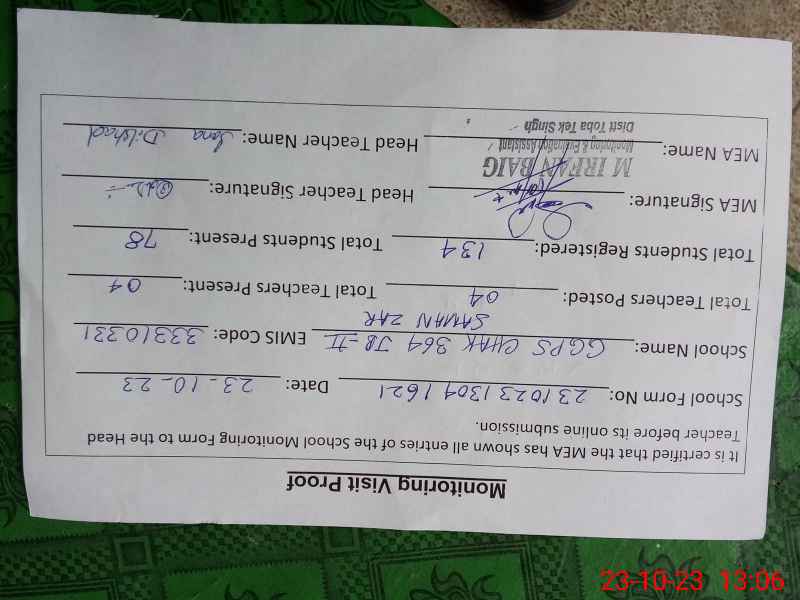 Monitoring Visit Proof
It is certified that the MEA has shown all entries of the School Monitoring Form to the Head
Teacher before its online submission.
School Form No: 23102313041621 Date: 23-10-23
School Name: GGPS CHAK 364 JB-II EMIS Code: 33310331
SAMAN ZAR
Total Teachers Posted: 04 Total Teachers Present: 04
Total Students Registered: 134 Total Students Present: 78
MEA Signature: Head Teacher Signature:
M IRFAN BAIG
Monitoring & Evaluation Assistant
MEA Name: Head Teacher Name: Sana Dilshad
Distt Toba Tek Singh
23-10-23 13:06